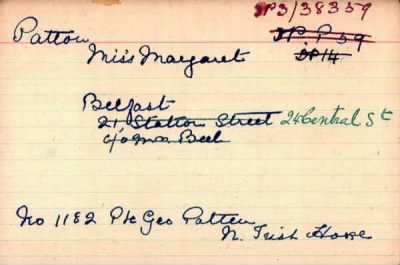 SP3/38359
Patton
SP P 59
Miss Margaret
SP14
Belfast
21, Station Street 24 Central St
c/o Mrs Beck
No 1182 Pte Geo Patton
N. Irish Horse